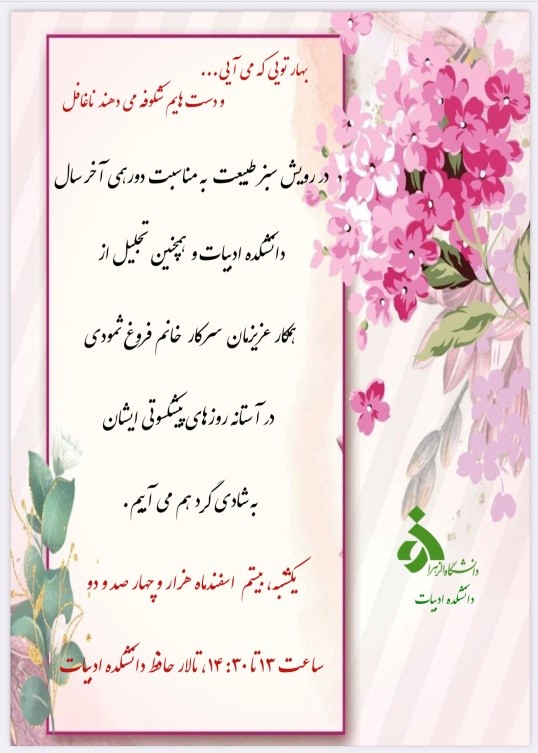 بهار تویی که می آیی...
و دست هایم شکوفه می دهند ناغافل
در رویش سبز طبیعت به مناسبت دورهمی آخر سال
دانشکده ادبیات و همچنین تجلیل از
همکار عزیزمان سرکار خانم فروغ ثمودی
در آستانه روزهای پیشکسوتی ایشان
به شادی گرد هم می آییم.
یکشنبه، بیستم اسفندماه هزار و چهار صد و دو
ساعت ۱۳ تا ۱۴:۳۰، تالار حافظ دانشکده ادبیات
دانشگاه الزهرا
دانشکده ادبیات